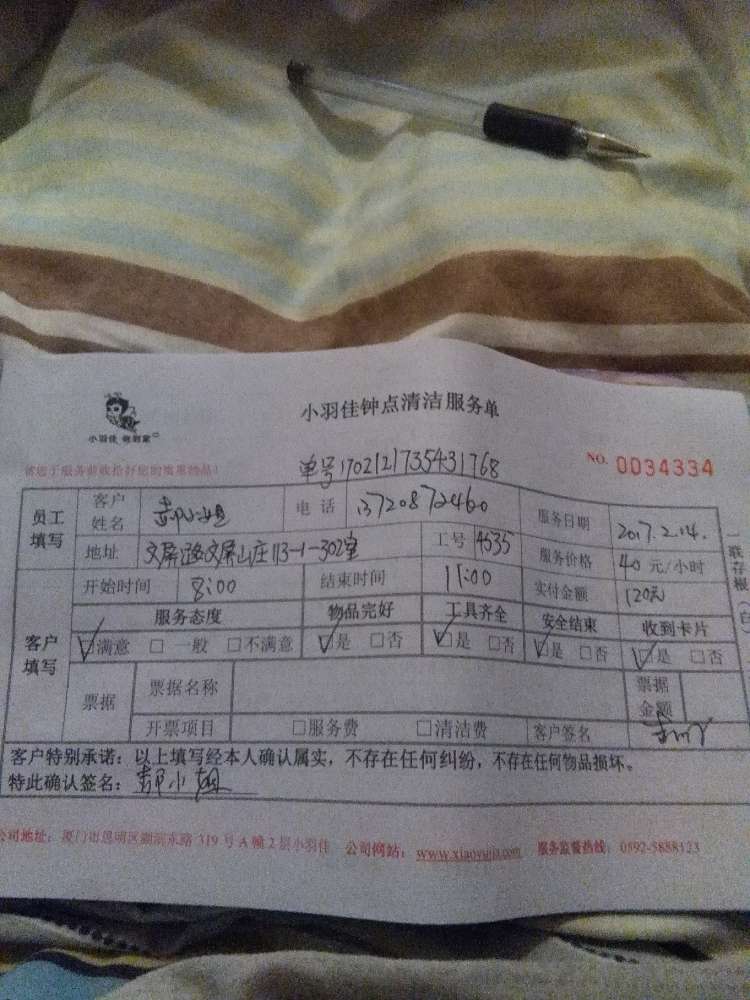 小羽佳钟点清洁服务单
小羽佳 帮到家
请您于服务前收拾好您的贵重物品!
单号1702121735431768
NO. 0034334
员工填写 客户姓名 郝小姐 电话 13720872460 服务日期 2017.2.14.
地址 文屏路文屏山庄113-1-302室 工号 4535 服务价格 40 元/小时
客户填写 开始时间 8:00 结束时间 11:00 实付金额 120元
服务态度 物品完好 工具齐全 安全结束 收到卡片
☑满意 □ 一般 □不满意 ☑是 □否 ☑是 □否 ☑是 □否 ☑是 □否
票据 票据名称 票据金额
开票项目 □服务费 □清洁费 客户签名
客户特别承诺:以上填写经本人确认属实,不存在任何纠纷,不存在任何物品损坏。
特此确认签名:郝小姐
公司地址:厦门市思明区湖滨东路 319 号 A 幢 2 层小羽佳 公司网站:www.xiaoyujia.com 服务监督热线:0592-5888123
一联存根(白